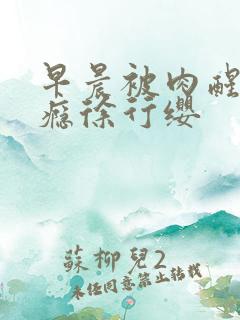 早晨被肉醒
瘾徐行缨
蘇柳兒2
未经同意禁止转载